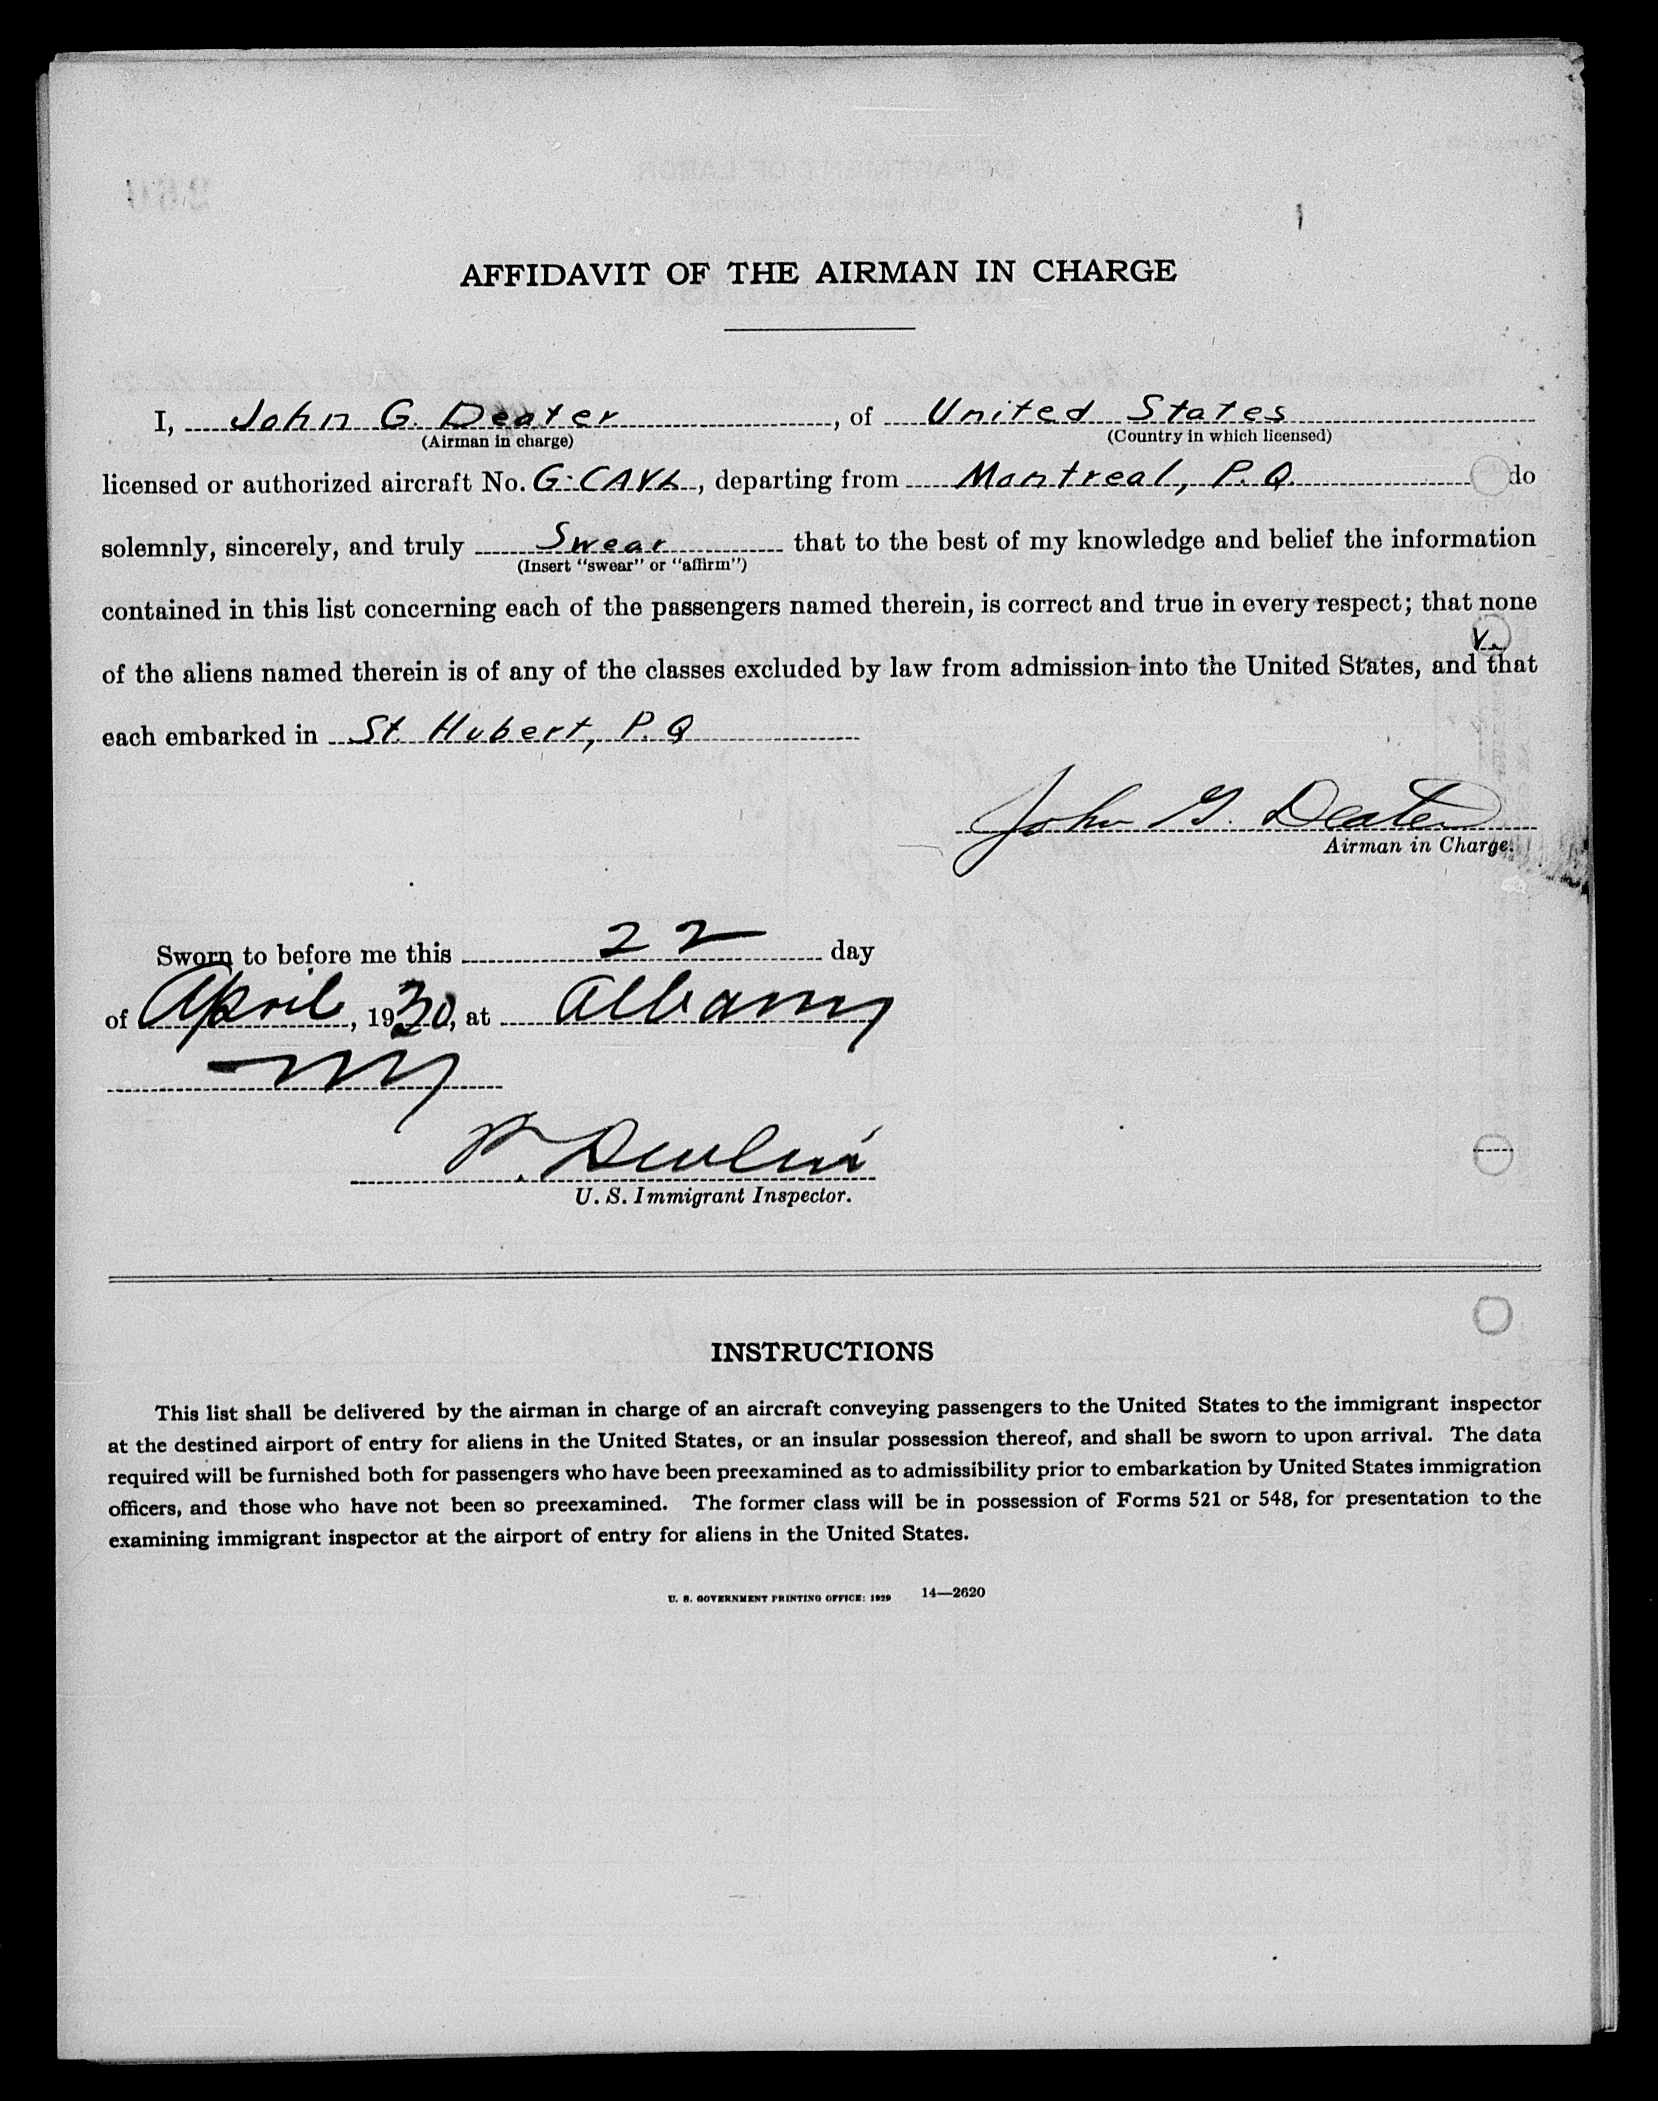 AFFIDAVIT OF THE AIRMAN IN CHARGE
I, John G. Deater, of United States
(Airman in charge) (Country in which licensed)
licensed or authorized aircraft No. , departing from Montreal, P. Q. do
solemnly, sincerely, and truly Swear that to the best of my knowledge and belief the information
(Insert "swear" or "affirm")
contained in this list concerning each of the passengers named therein, is correct and true in every respect; that none
of the aliens named therein is of any of the classes excluded by law from admission into the United States, and that
each embarked in St. Hubert, P. Q
John G. Deater
Airman in Charge.
Sworn to before me this 22 day
of April, 1930, at Albany
NY
Devlin
U. S. Immigrant Inspector.
INSTRUCTIONS
This list shall be delivered by the airman in charge of an aircraft conveying passengers to the United States to the immigrant inspector
at the destined airport of entry for aliens in the United States, or an insular possession thereof, and shall be sworn to upon arrival. The data
required will be furnished both for passengers who have been preexamined as to admissibility prior to embarkation by United States immigration
officers, and those who have not been so preexamined. The former class will be in possession of Forms 521 or 548, for presentation to the
examining immigrant inspector at the airport of entry for aliens in the United States.
U. S. GOVERNMENT PRINTING OFFICE: 1929 14—2620